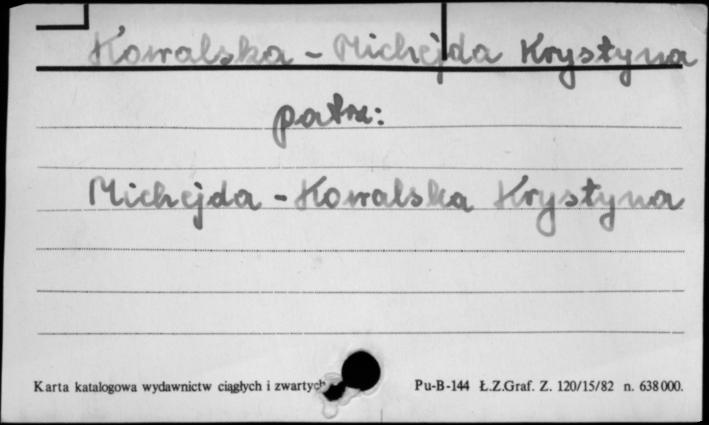 Kowalska - Michejda Krystyna
patrz:
Michejda - Kowalska Krystyna
Karta katalogowa wydawnictw ciągłych i zwartych Pu-B-144 Ł.Z.Graf. Z. 120/15/82 n. 638000.